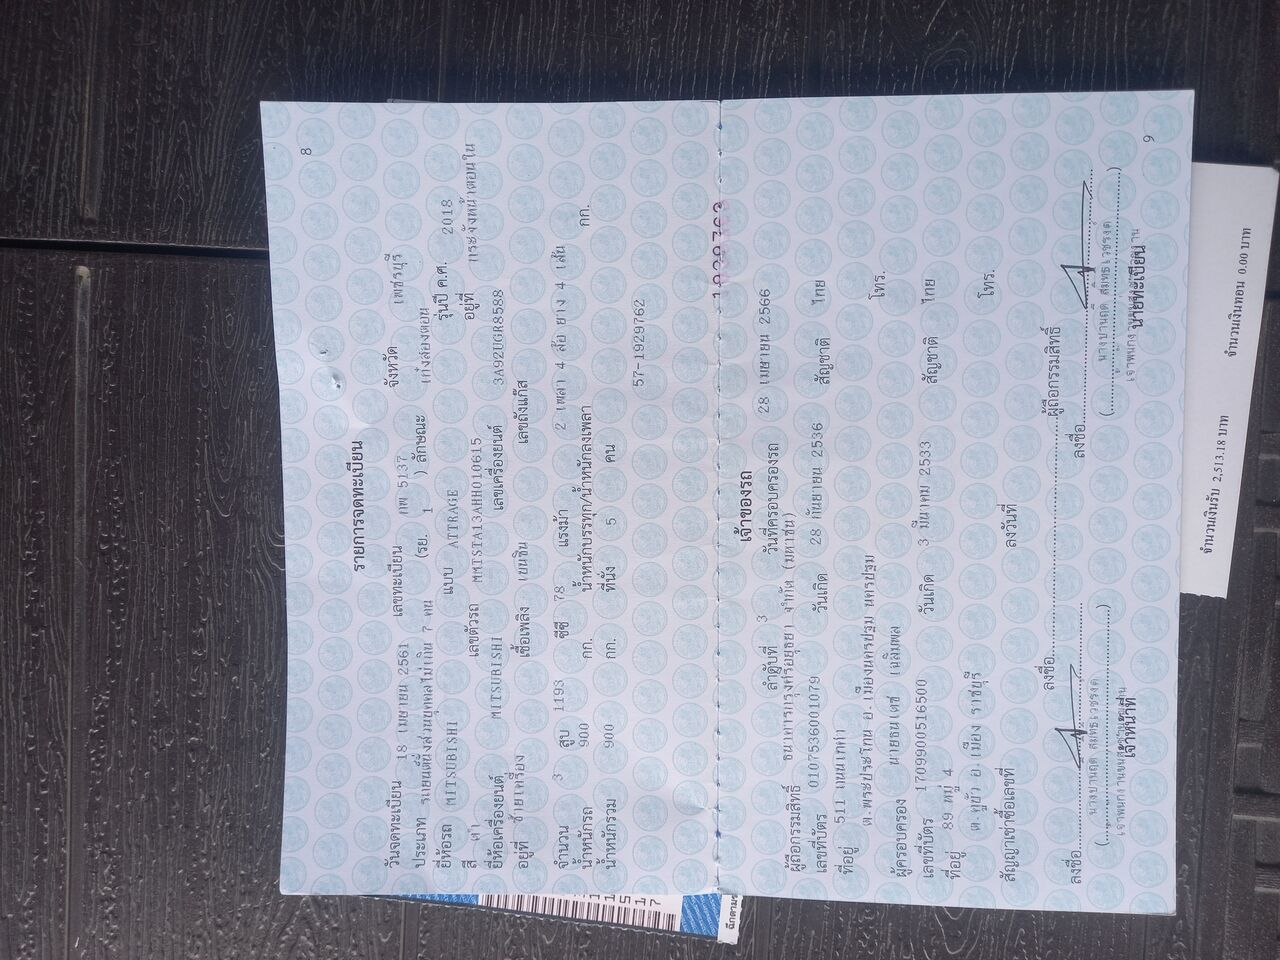 8
รายการจดทะเบียน
วันจดทะเบียน 18 เมษายน 2561 เลขทะเบียน กพ 5137 จังหวัด เพชรบุรี
ประเภท รถยนต์นั่งส่วนบุคคลไม่เกิน 7 คน (รย. 1 ) ลักษณะ เก๋งสองตอน
ยี่ห้อรถ MITSUBISHI แบบ ATTRAGE รุ่นปี ค.ศ. 2018
สี ดำ เลขตัวรถ MMTSTA13AHH010615 อยู่ที่ แระจังหน้าตอนใน
ยี่ห้อเครื่องยนต์ MITSUBISHI เลขเครื่องยนต์ 3A92UGR8588
อยู่ที่ ซ้ายเครื่อง เชื้อเพลิง เบนซิน เลขถังแก๊ส
จำนวน 3 สูบ 1193 ซีซี 78 แรงม้า 2 เพลา 4 ล้อ ยาง 4 เส้น
น้ำหนักรถ 900 กก. น้ำหนักบรรทุก/น้ำหนักลงเพลา กก.
น้ำหนักรวม 900 กก. ที่นั่ง 5 คน
57-1929762
เจ้าของรถ
ลำดับที่ 3 วันที่ครอบครองรถ 28 เมษายน 2566
ผู้ถือกรรมสิทธิ์ ธนาคารกรุงศรีอยุธยา จำกัด (มหาชน)
เลขที่บัตร 0107536001079 วันเกิด 28 กันยายน 2536 สัญชาติ ไทย
ที่อยู่ 511 ถนนเทศา
ต.พระประโทน อ.เมืองนครปฐม นครปฐม โทร.
ผู้ครอบครอง นายธนเดช เฉลิมพล
เลขที่บัตร 1709900516500 วันเกิด 3 มีนาคม 2533 สัญชาติ ไทย
ที่อยู่ 89 หมู่ 4
ต.คูบัว อ.เมือง ราชบุรี โทร.
สัญญาเช่าซื้อเลขที่ ลงวันที่
ลงชื่อ ผู้ถือกรรมสิทธิ์
ลงชื่อ ลงชื่อ
เจ้าหน้าที่ นายทะเบียน
9
จำนวนเงินรับ 2,513.18 บาท จำนวนเงินทอน 0.00 บาท